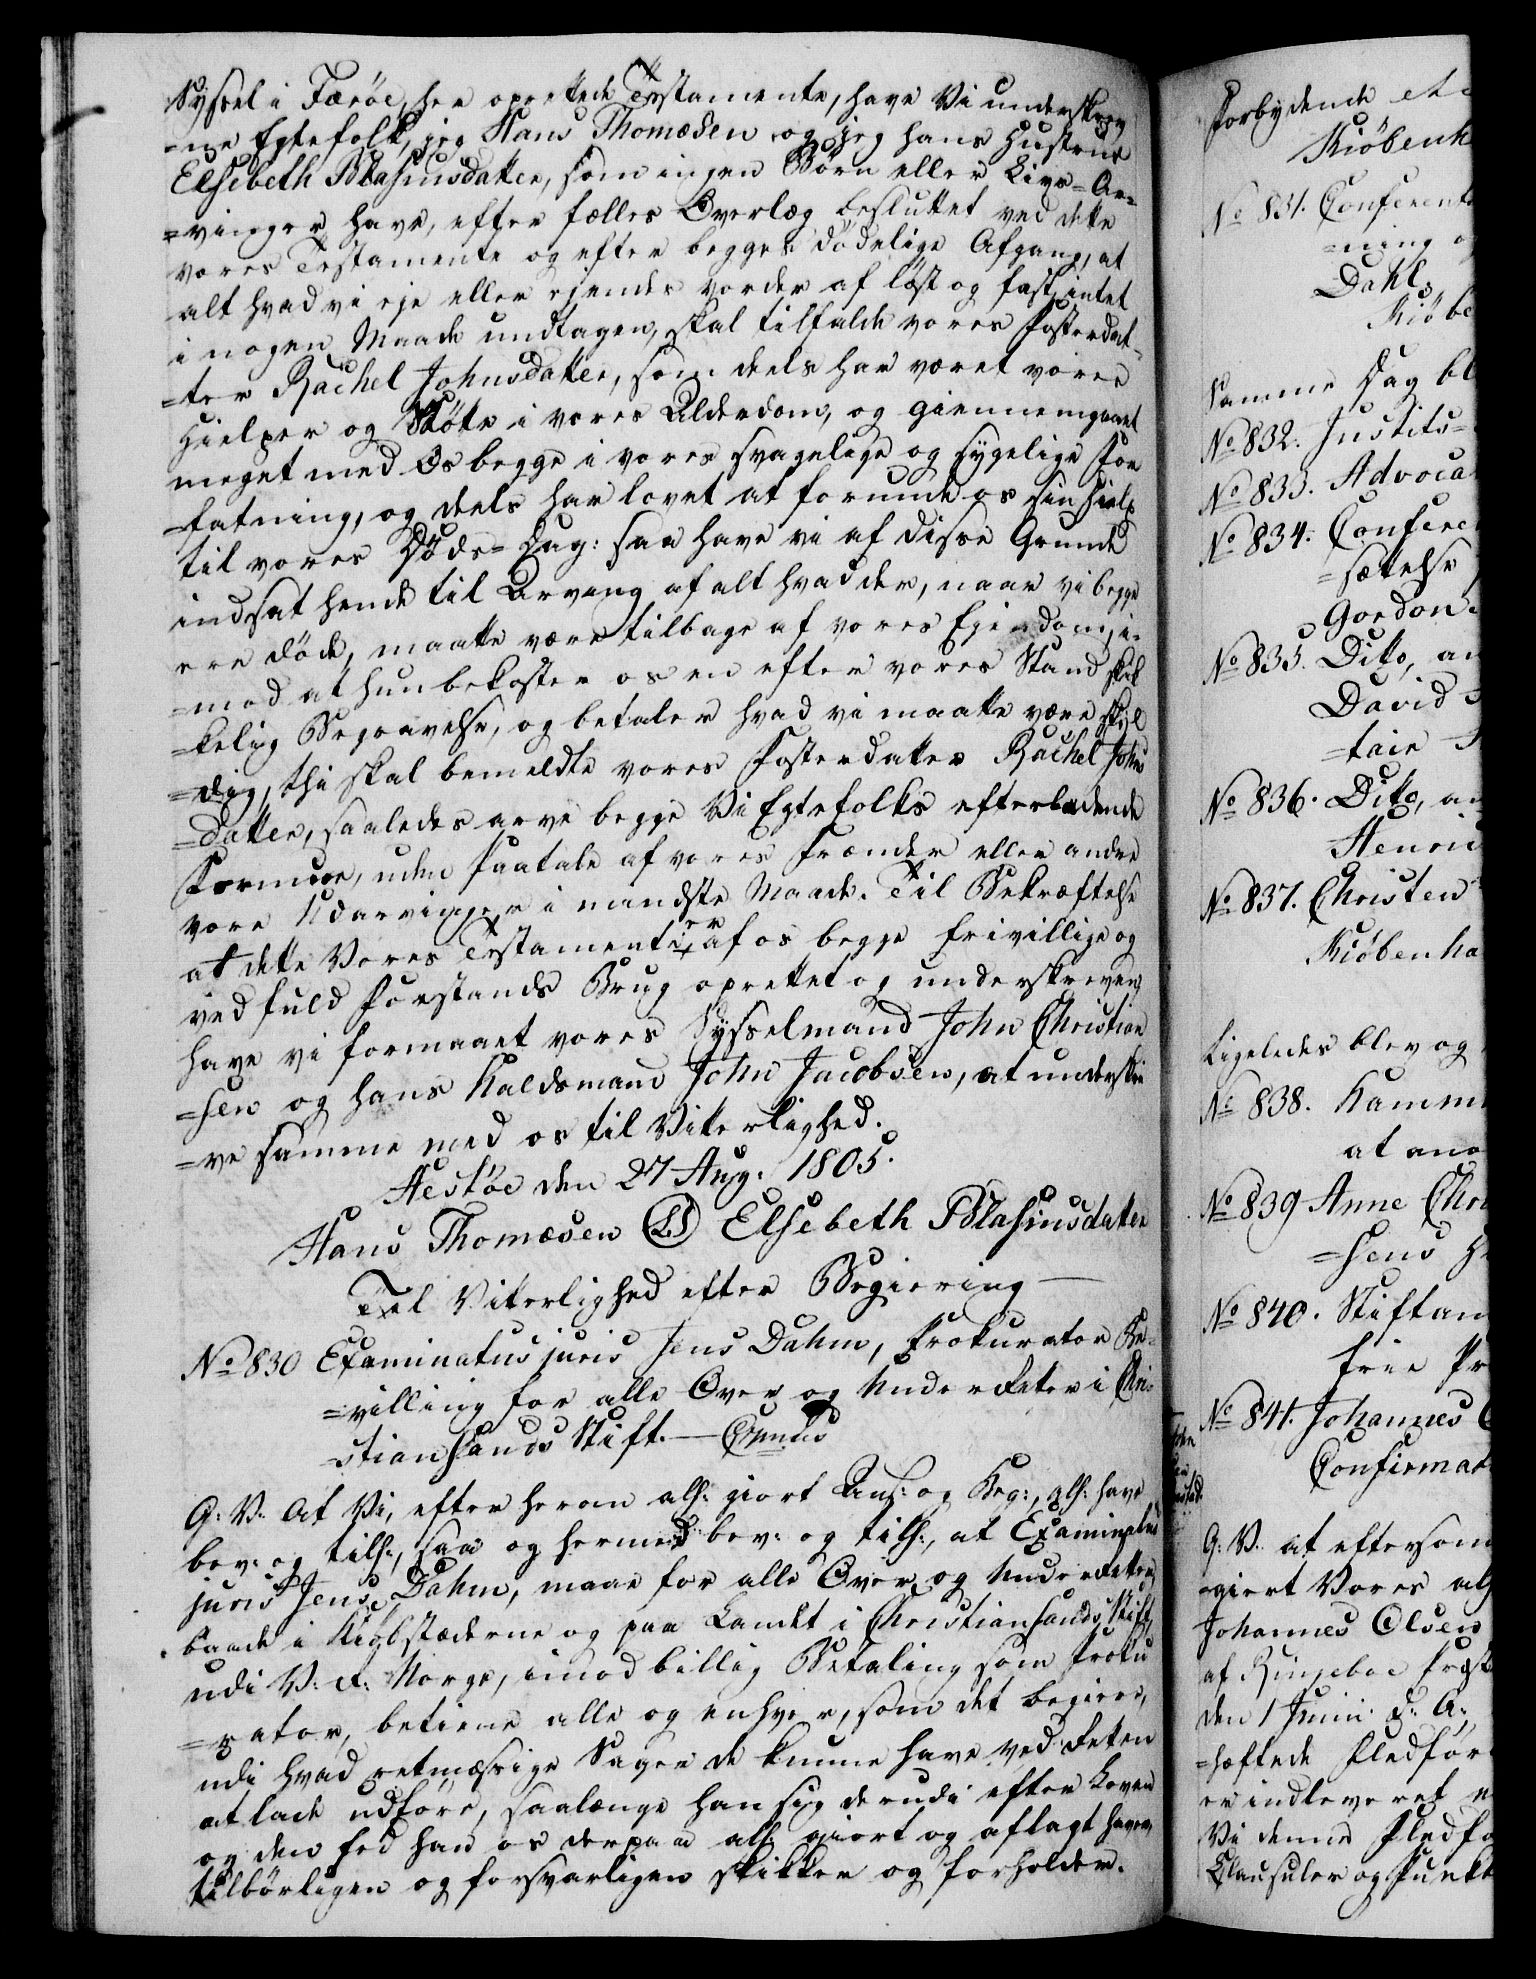 Syssel i Færöe, her oprettede Testamente, have Vi underskrev
=ne Egtefolk, jeg Hans Thomæsen og jeg hans Hustrue
Elsebeth Blasiusdatter, som ingen Börn eller Livs=Ar=
=vinger have, efter fælles Overlæg besluttet ved dette
vores Testamente og efter begges dödelige Afgang, at
alt hvad vi eje eller ejendes vorder af löst og fast, intet
i nogen Maade undtagen, skal tilfalde vores Fosterdat=
=ter Rachel Johnsdatter, som deels har været vores
Hielper og Stötte i vores Alderdom, og giennemgaaet
meget med Os begge i vores svagelige og sygelige For
=fatning, og deels har lovet at forunde os sin Hielp
til vores Döds=Dag: saa have vi af disse Grunde
indsat hende til Arving af alt hvad der, naar vi begge
ere döde, maatte være tilbage af vores Eiendom, i=
=mod at hun bekoster os en efter vores Stand skik
=kelig Begravelse, og betaler hvad vi maatte være skyl
=dig, thi skal bemeldte vores Fosterdatter Rachel Johns
=datter, saaledes arve begge Vi Egtefolks efterladende
Formue, uden Paatale af vores Frænder eller andre
vore Udarvinger i mindste Maade. Til Bekræftelse
at dette Vores Testament er af os begge frivillige og
ved fuld Forstands Brug oprettet og underskreven,
have vi formaaet vores Sysselmand John Christian
=sen og hans Kaldsmand John Jacobsen, at underskri
=ve samme med os til Viterlighed.
Hestöe den 27 Aug. 1805.
Hans Thomæsen (LS) Elsebeth Blasiusdatter
Til Viterlighed efter Begiering —
No 830 Examinatus juris Jens Dahm, Prokurator Be=
=villing for alle Over og Underretter i Chri=
=stiansands Stift. —
G: V: At Vi, efter heron alh: giort Ans: og Beg:, alh: have
bev: og tilh:, saa og hermed bev: og tilh:, at Examinatus
juris Jens Dahm, maae for alle Over og Underretter,
baade i Kiöbstæderne og paa Landet i Christiansands Stift,
udi V: R: Norge, imod billig Betaling som Proku
=rator, betiene alle og enhver, som det begierer,
udi hvad retmæssige Sager de kunne have ved Retten
at lade udföre, saalænge han sig derudi efter Loven
og den Eed han os derpaa alh: giort og aflagt haver,
tilbörligen og forsvarligen skikker og forholder.
Forbydende
Kiöbenh
No 831. Conferents
=ning o
Dahl,
Kiöbe
Samme Dag bl
No 832. Justits=
No 833. Advoca
No 834. Conferen
=sættelse
Gordon
No 835. Ditto, an
David
=tair
No 836. Ditto, an
Henri
No 837. Christen
Kiöbenha
Ligeledes blev og
No 838. Kamm
at an
No 839 Anne Chri
=sens H
No 840. Stiftam
frie Pr
No 841. Johannes
Confirmat
G: V: at eftersom
=giort Vores alh
Johannes Olsen
af Ringeboe Præst
den 1 Junii d: A:,
=hæftede Fledför
er indleveret
Vi denne Fledfö
Clausuler og Punkt